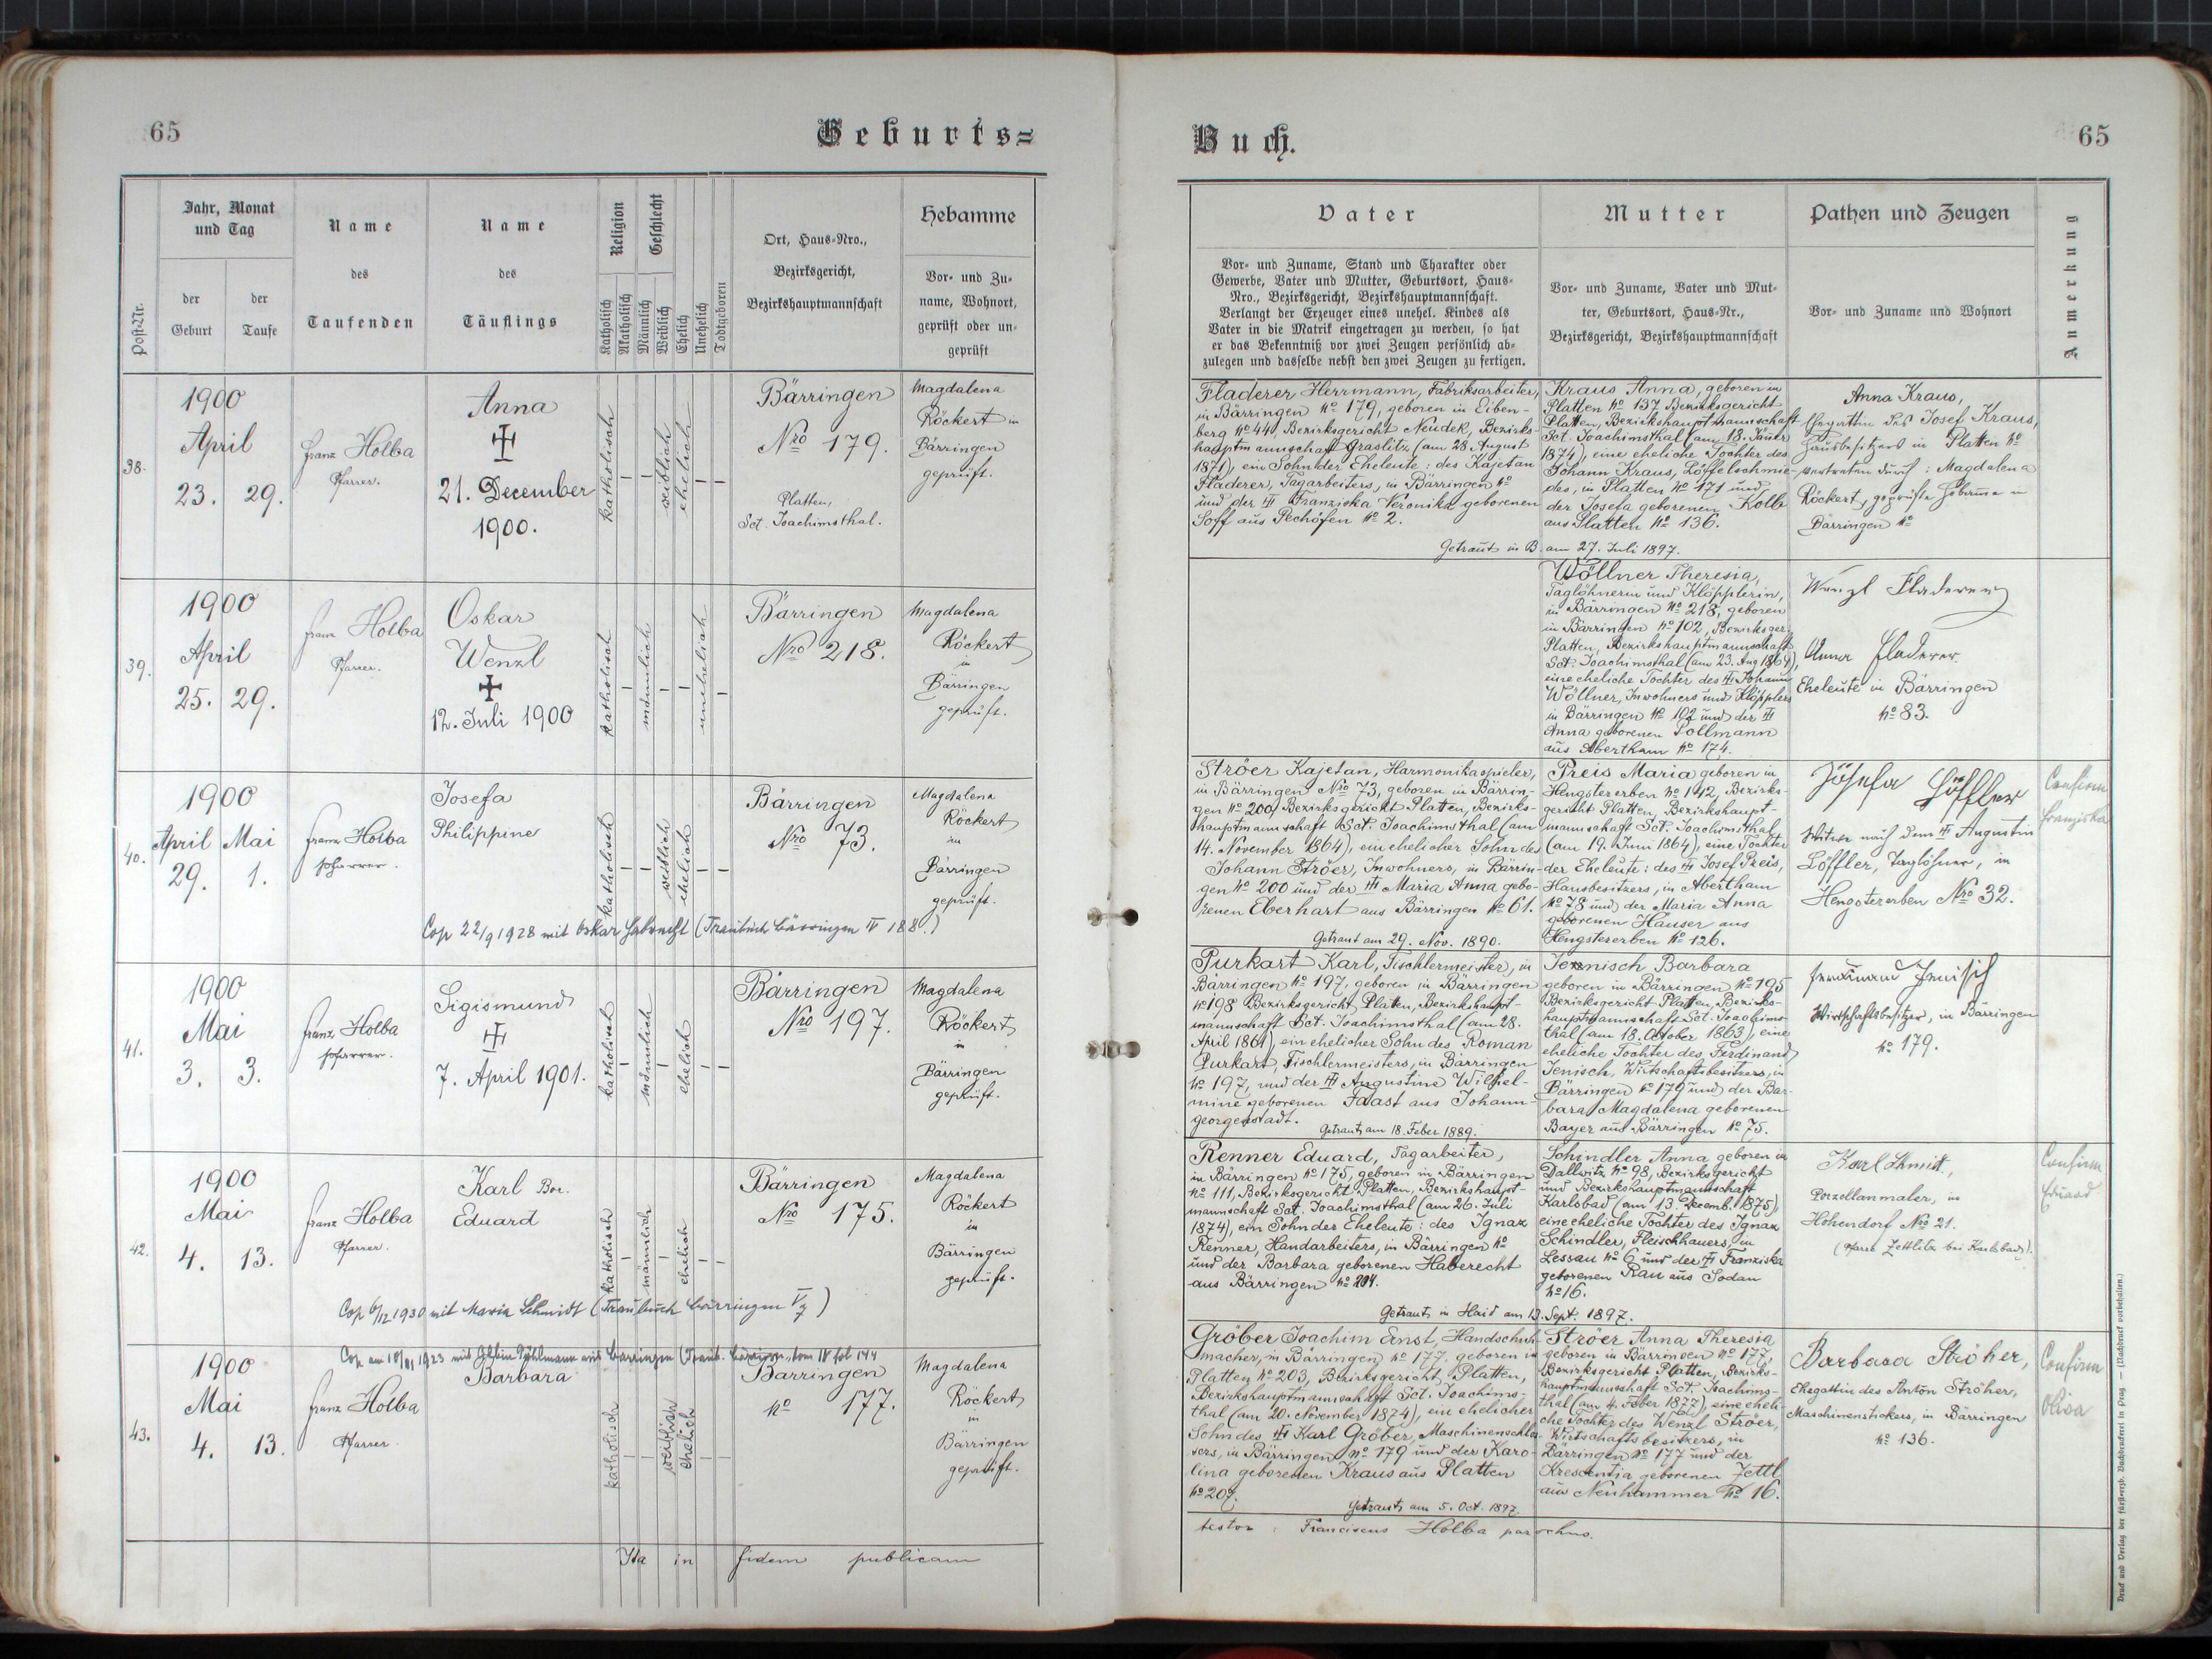 65
Geburts=
Post-Nr.
Jahr, Monat
und Tag
der
Geburt
der
Taufe
Name
des
Taufenden
Name
des
Täuflings
Religion
Katholisch
Akatholisch
Geschlecht
Männlich
Weiblich
Ehelich
Unehelich
Todtgeboren
Ort, Haus-Nro.,
Bezirksgericht,
Bezirkshauptmannschaft
Hebamme
Vor- und Zu-
name, Wohnort,
geprüft oder un-
geprüft
38.
1900
April
23. 29.
Franz Holba
Pfarrer.
Anna
21. December
1900.
katholisch
weiblich
ehelich
Bärringen
Nro 179.
Platten,
Sct. Joachimsthal.
Magdalena
Röckert in
Bärringen
geprüft.
39.
1900
April
25. 29.
Franz Holba
Pfarrer.
Oskar
Wenzl
12. Juli 1900
katholisch
männlich
unehelich
Bärringen
Nro 218.
Magdalena
Röckert
in
Bärringen
geprüft.
40.
1900
April Mai
29. 1.
Franz Holba
Pfarrer.
Josefa
Philippine
katholisch
weiblich
ehelich
Bärringen
Nro 73.
Magdalena
Röckert
in
Bärringen
geprüft.
Cop 22/9 1928 mit Oskar (Traubuch Bärringen IV 188.)
41.
1900
Mai
3. 3.
Franz Holba
Pfarrer.
Sigismund
7. April 1901.
katholisch
männlich
ehelich
Bärringen
Nro 197.
Magdalena
Röckert
in
Bärringen
geprüft.
42.
1900
Mai
4. 13.
Franz Holba
Pfarrer.
Karl Bor.
Eduard
katholisch
männlich
ehelich
Bärringen
Nro 175.
Magdalena
Röckert
in
Bärringen
geprüft.
Cop 6/12 1930 mit Maria Schmidt (Traubuch Bärringen V 7)
43.
Cop am 1923 mit Pöhlmann aus Bärringen (Traub. Bärringen tom IV fol 144
1900
Mai
4. 13.
Franz Holba
Pfarrer
Barbara
katholisch
weiblich
ehelich
Bärringen
No 177.
Magdalena
Röckert
in
Bärringen
geprüft.
Ita in fidem publicam
Buch.
65
Vater
Vor- und Zuname, Stand und Charakter oder
Gewerbe, Vater und Mutter, Geburtsort, Haus-
Nro., Bezirksgericht, Bezirkshauptmannschaft.
Verlangt der Erzeuger eines unehel. Kindes als
Vater in die Matrik eingetragen zu werden, so hat
er das Bekenntniß vor zwei Zeugen persönlich ab-
zulegen und dasselbe nebst den zwei Zeugen zu fertigen.
Mutter
Vor- und Zuname, Vater und Mut-
ter, Geburtsort, Haus-Nr.,
Bezirksgericht, Bezirkshauptmannschaft
Pathen und Zeugen
Vor- und Zuname und Wohnort
Anmerkung
Fladerer Herrmann, Fabriksarbeiter,
in Bärringen No 179, geboren in Eiben-
berg No 44, Bezirksgericht Neudek, Bezirks-
hauptmannschaft Graslitz (am 28. August
1871), ein Sohn der Eheleute: des Kajetan
Fladerer, Tagarbeiters, in Bärringen No
und der Franziska Veronika geborenen
Soff aus Pechöfen No 2.
Kraus Anna, geboren in
Platten No 137 Bezirksgericht
Platten, Bezirkshauptmannschaft
Sct. Joachimsthal (am 18. Jäner
1874), eine eheliche Tochter des
Johann Kraus, Löffelschmie-
des, in Platten No 171 und
der Josefa geborenen Kolb
aus Platten No 136.
Getraut in B. am 27. Juli 1897.
Anna Kraus,
Ehegattin des Josef Kraus,
Hausbesitzers in Platten No
vertreten durch: Magdalena
Röckert, geprüfte Hebamme in
Bärringen No
Wöllner Theresia,
Taglöhnerin und Klöpplerin,
in Bärringen No 218, geboren
in Bärringen No 102, Bezirksger.
Platten, Bezirkshauptmannschaft
Sct. Joachimsthal (am 23. Aug 1864),
eine eheliche Tochter des Johann
Wöllner, Inwohners und Klöpplers
in Bärringen No 102 und der
Anna geborenen Pollmann
aus Abertham No 174.
Wenzl Fladerer
Anna Fladerer
Eheleute in Bärringen
No 83.
Ströer Kajetan, Harmonikaspieler,
in Bärringen Nro 73, geboren in Bärrin-
gen No 200, Bezirksgericht Platten, Bezirks-
hauptmannschaft Sct. Joachimsthal (am
14. November 1864), ein ehelicher Sohn des
Johann Ströer, Inwohners, in Bärrin-
gen No 200 und der Maria Anna gebo-
renen Eberhart aus Bärringen No 61.
Getraut am 29. Nov. 1890.
Preis Maria geboren in
Hengstererben No 142, Bezirks-
gericht Platten, Bezirkshaupt-
mannschaft Sct. Joachimsthal
(am 19. Juni 1864), eine Tochter
der Eheleute: des Josef Preis,
Hausbesitzers, in Abertham
No 78 und der Maria Anna
geborenen Hauser aus
Hengstererben No 126.
Josefa Löffler
Witwe nach dem Augustin
Löffler, Taglöhner, in
Hengstererben Nro 32.
Confirm
Franziska
Purkart Karl, Tischlermeister, in
Bärringen No 197, geboren in Bärringen
No 198 Bezirksgericht Platten, Bezirkshaupt-
mannschaft Sct. Joachimsthal (am 28.
April 1861), ein ehelicher Sohn des Roman
Purkart, Tischlermeisters, in Bärringen
No 197, und der Augustine Wilhel-
mine geborenen Faast aus Johann-
georgenstadt.
Getraut am 18. Feber 1889.
Jenisch Barbara
geboren in Bärringen No 195
Bezirksgericht Platten, Bezirks-
hauptmannschaft Sct. Joachims-
thal (am 18. October 1863), eine
eheliche Tochter des Ferdinand
Jenisch, Wirtschaftsbesitzers, in
Bärringen No 179 und der Bar-
bara Magdalena geborenen
Bayer aus Bärringen No 75.
Ferdinand Jenisch
Wirtschaftsbesitzer, in Bärringen
No 179.
Renner Eduard, Tagarbeiter,
in Bärringen No 175, geboren in Bärringen
No 111, Bezirksgericht Platten, Bezirkshaupt-
mannschaft Sct. Joachimsthal (am 26. Juli
1874), ein Sohn der Eheleute: des Ignaz
Renner, Handarbeiters, in Bärringen No
und der Barbara geborenen Haberecht
aus Bärringen No 204.
Schindler Anna geboren in
Dallwitz No 98, Bezirksgericht
und Bezirkshauptmannschaft
Karlsbad (am 13. Decemb. 1875),
eine eheliche Tochter des Ignaz
Schindler, Fleischhauers, in
Lessau No 6 und der Franziska
geborenen Rau aus Sodau
No 16.
Getraut in Haid am 13. Sept. 1897.
Karl Schmidt,
Porzellanmaler, in
Hohendorf Nro 21.
(Pfarre Zettlitz bei Karlsbad).
Confirm
Eduard
Gröber Joachim Ernst, Handschuh-
macher, in Bärringen No 177, geboren in
Platten No 203, Bezirksgericht Platten,
Bezirkshauptmannschaft Sct. Joachims-
thal (am 20. November 1874), ein ehelicher
Sohn des Karl Gröber, Maschinenschlos-
sers, in Bärringen No 179 und der Karo-
lina geborenen Kraus aus Platten
No 207.
Getraut am 5. Oct. 1897.
Ströer Anna Theresia
geboren in Bärringen No 177,
Bezirksgericht Platten, Bezirks-
hauptmannschaft Sct. Joachims-
thal (am 4. Feber 1877), eine eheli-
che Tochter des Wenzl Ströer,
Wirtschaftsbesitzers, in
Bärringen No 177 und der
Krescentia geborenen Zettl
aus Neuhammer No 16.
Barbara Ströher,
Ehegattin des Anton Ströher,
Maschinenstickers, in Bärringen
No 136.
Confirm
Olivia
testor: Franciscus Holba parochus.
Druck und Verlag der fürsterzb. Buchdruckerei in Prag. — (Nachdruck vorbehalten.)